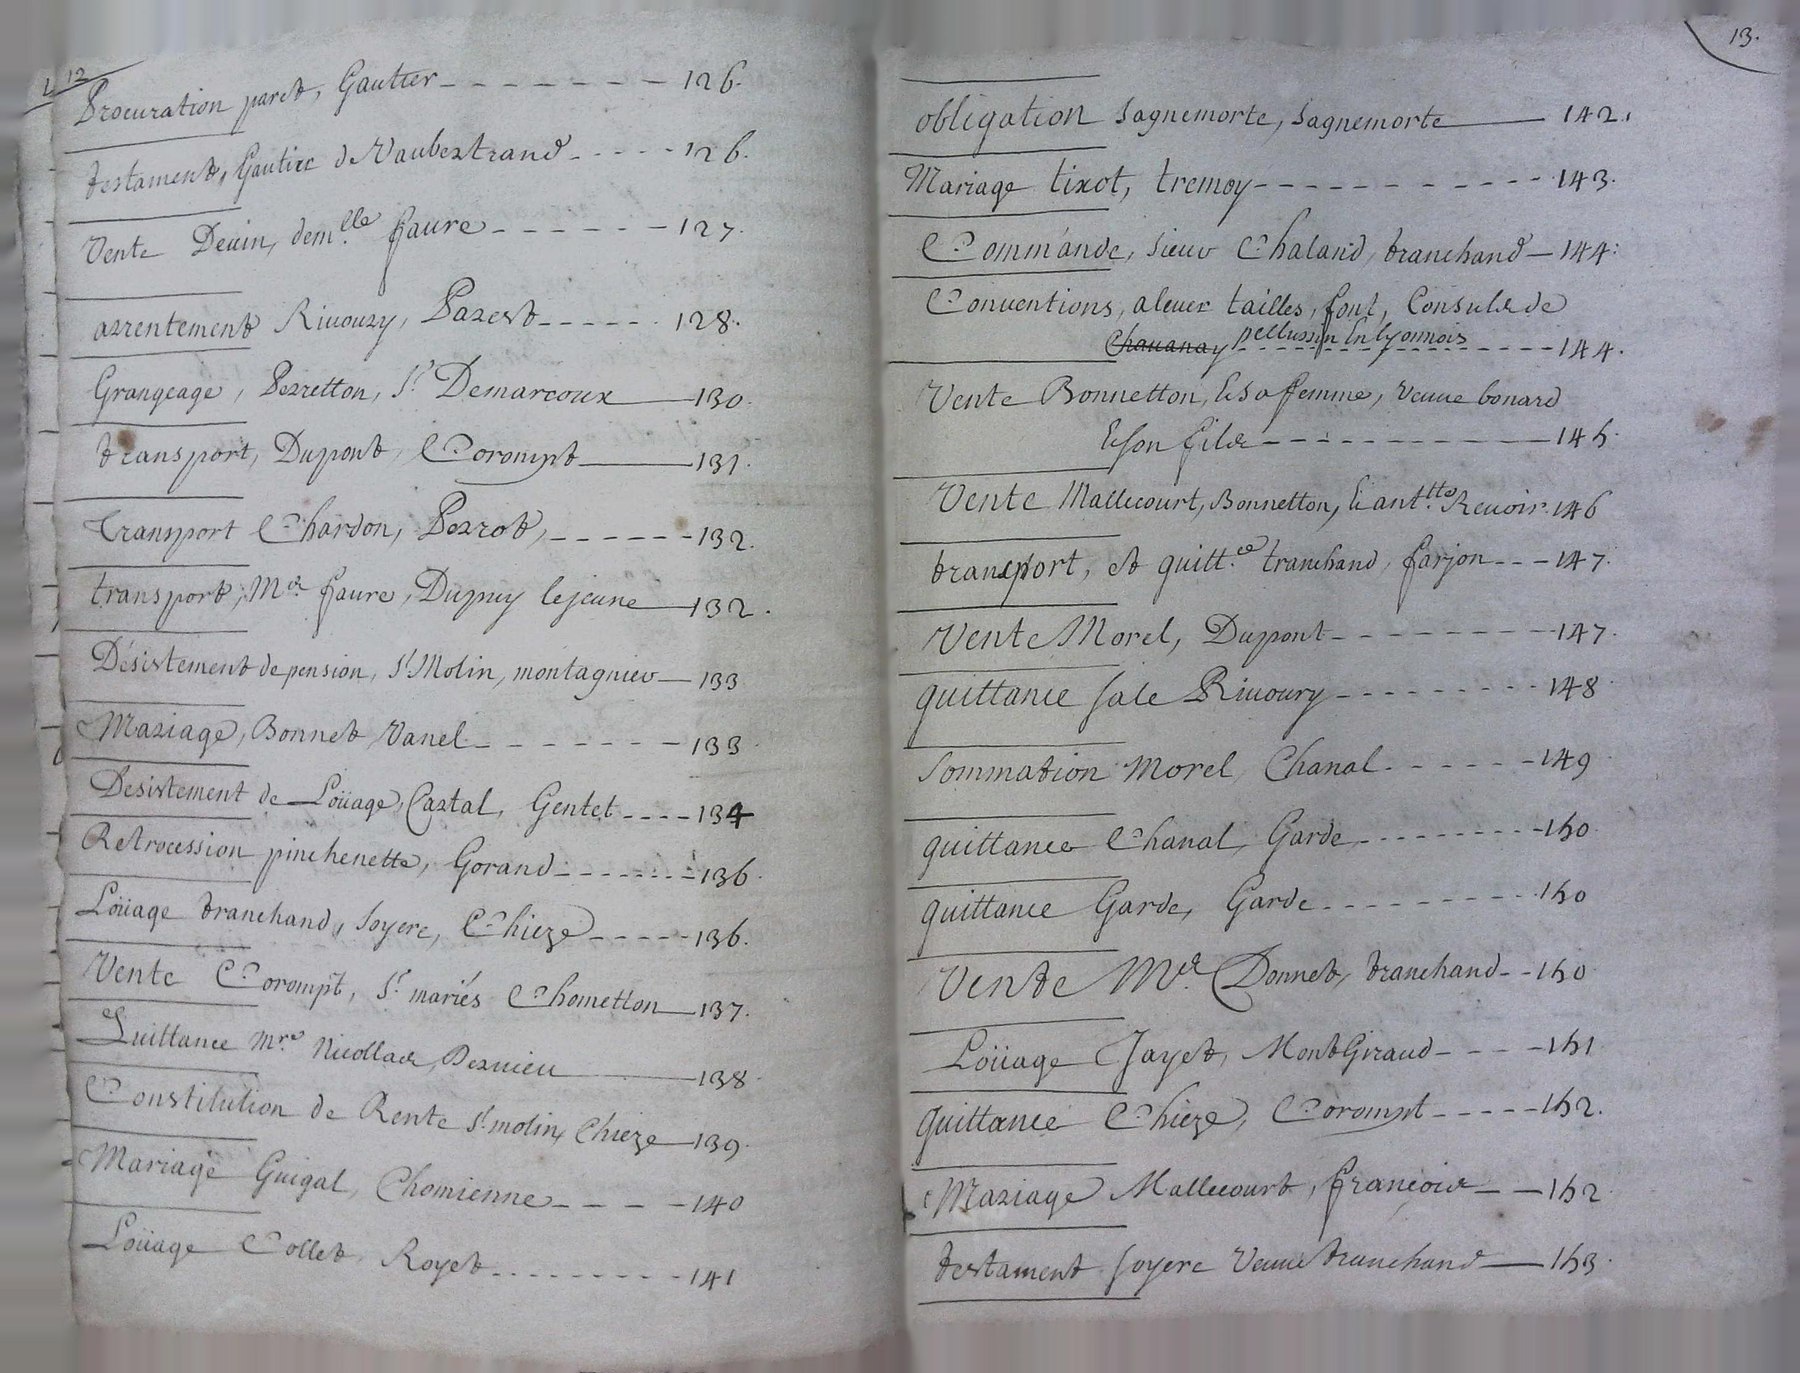 12
Procuration paret, Gautier - - - - - - - 126.
testament, Gautier de Vaubertrand - - - - - 126.
Vente Devin, dem.lle faure - - - - - - 127.
arrentement Rivoury, Pazest - - - - - 128.
Grangeage, Perretton, Sr. Demarcoux 130.
transport, Dupont, Corompt 131.
Transport Chardon, Perrot, - - - - - - 132.
transport, Me. faure, Dupuy lejeune 132.
Désistement de pension, Sr. Molin, montagnier 133
Mariage, Bonnet Vanel - - - - - - - 133.
Desistement de Loüage, Cartal, Gentet - - - - 134
Retrocession pinchenette, Gorand - - - - - - - 136.
Loüage tranchand, Soyere, Chieze - - - - - 136.
Vente Corompt, Sr. mariés Chometton 137.
Quittance Mre. Nicollas, Dervieu 138.
Constitution de Rente Sr. molin, Chieze 139.
Mariage Guigal, Chomienne - - - - 140
Loüage Collet, Royet - - - - - - - - - 141
13.
obligation Sagnemorte, Sagnemorte 142.
Mariage tixot, tremoy - - - - - - - - - - - 143.
Commande, sieur Chaland, tranchand 144.
Conventions, alever tailles, font, Consuls de
Chavanay pellussin En lyonnois - - - - 144.
Vente Bonnetton, & sa femme, veuve bonard
& son fils - - - - - - - - - - 145.
Vente Mallecourt, Bonnetton, & ant.tte Revoir. 146
transport, et quitt.ce tranchand, farjon - - - 147.
Vente Morel, Dupont - - - - - - - - 147.
quittance Sale Rivoury - - - - - - - - 148.
Sommation Morel, Chanal - - - - - - 149
quittance Chanal, Garde, - - - - - - - - - 150.
quittance Garde, Garde - - - - - - - - - 150
Vente Me. Donnet, tranchand - - 150.
Loüage Jayet, MontGiraud - - - - 151
quittance Chieze, Corompt - - - - - 152.
Mariage Mallecourt, françois - - 152
testament Soyere Veuve tranchand 153.